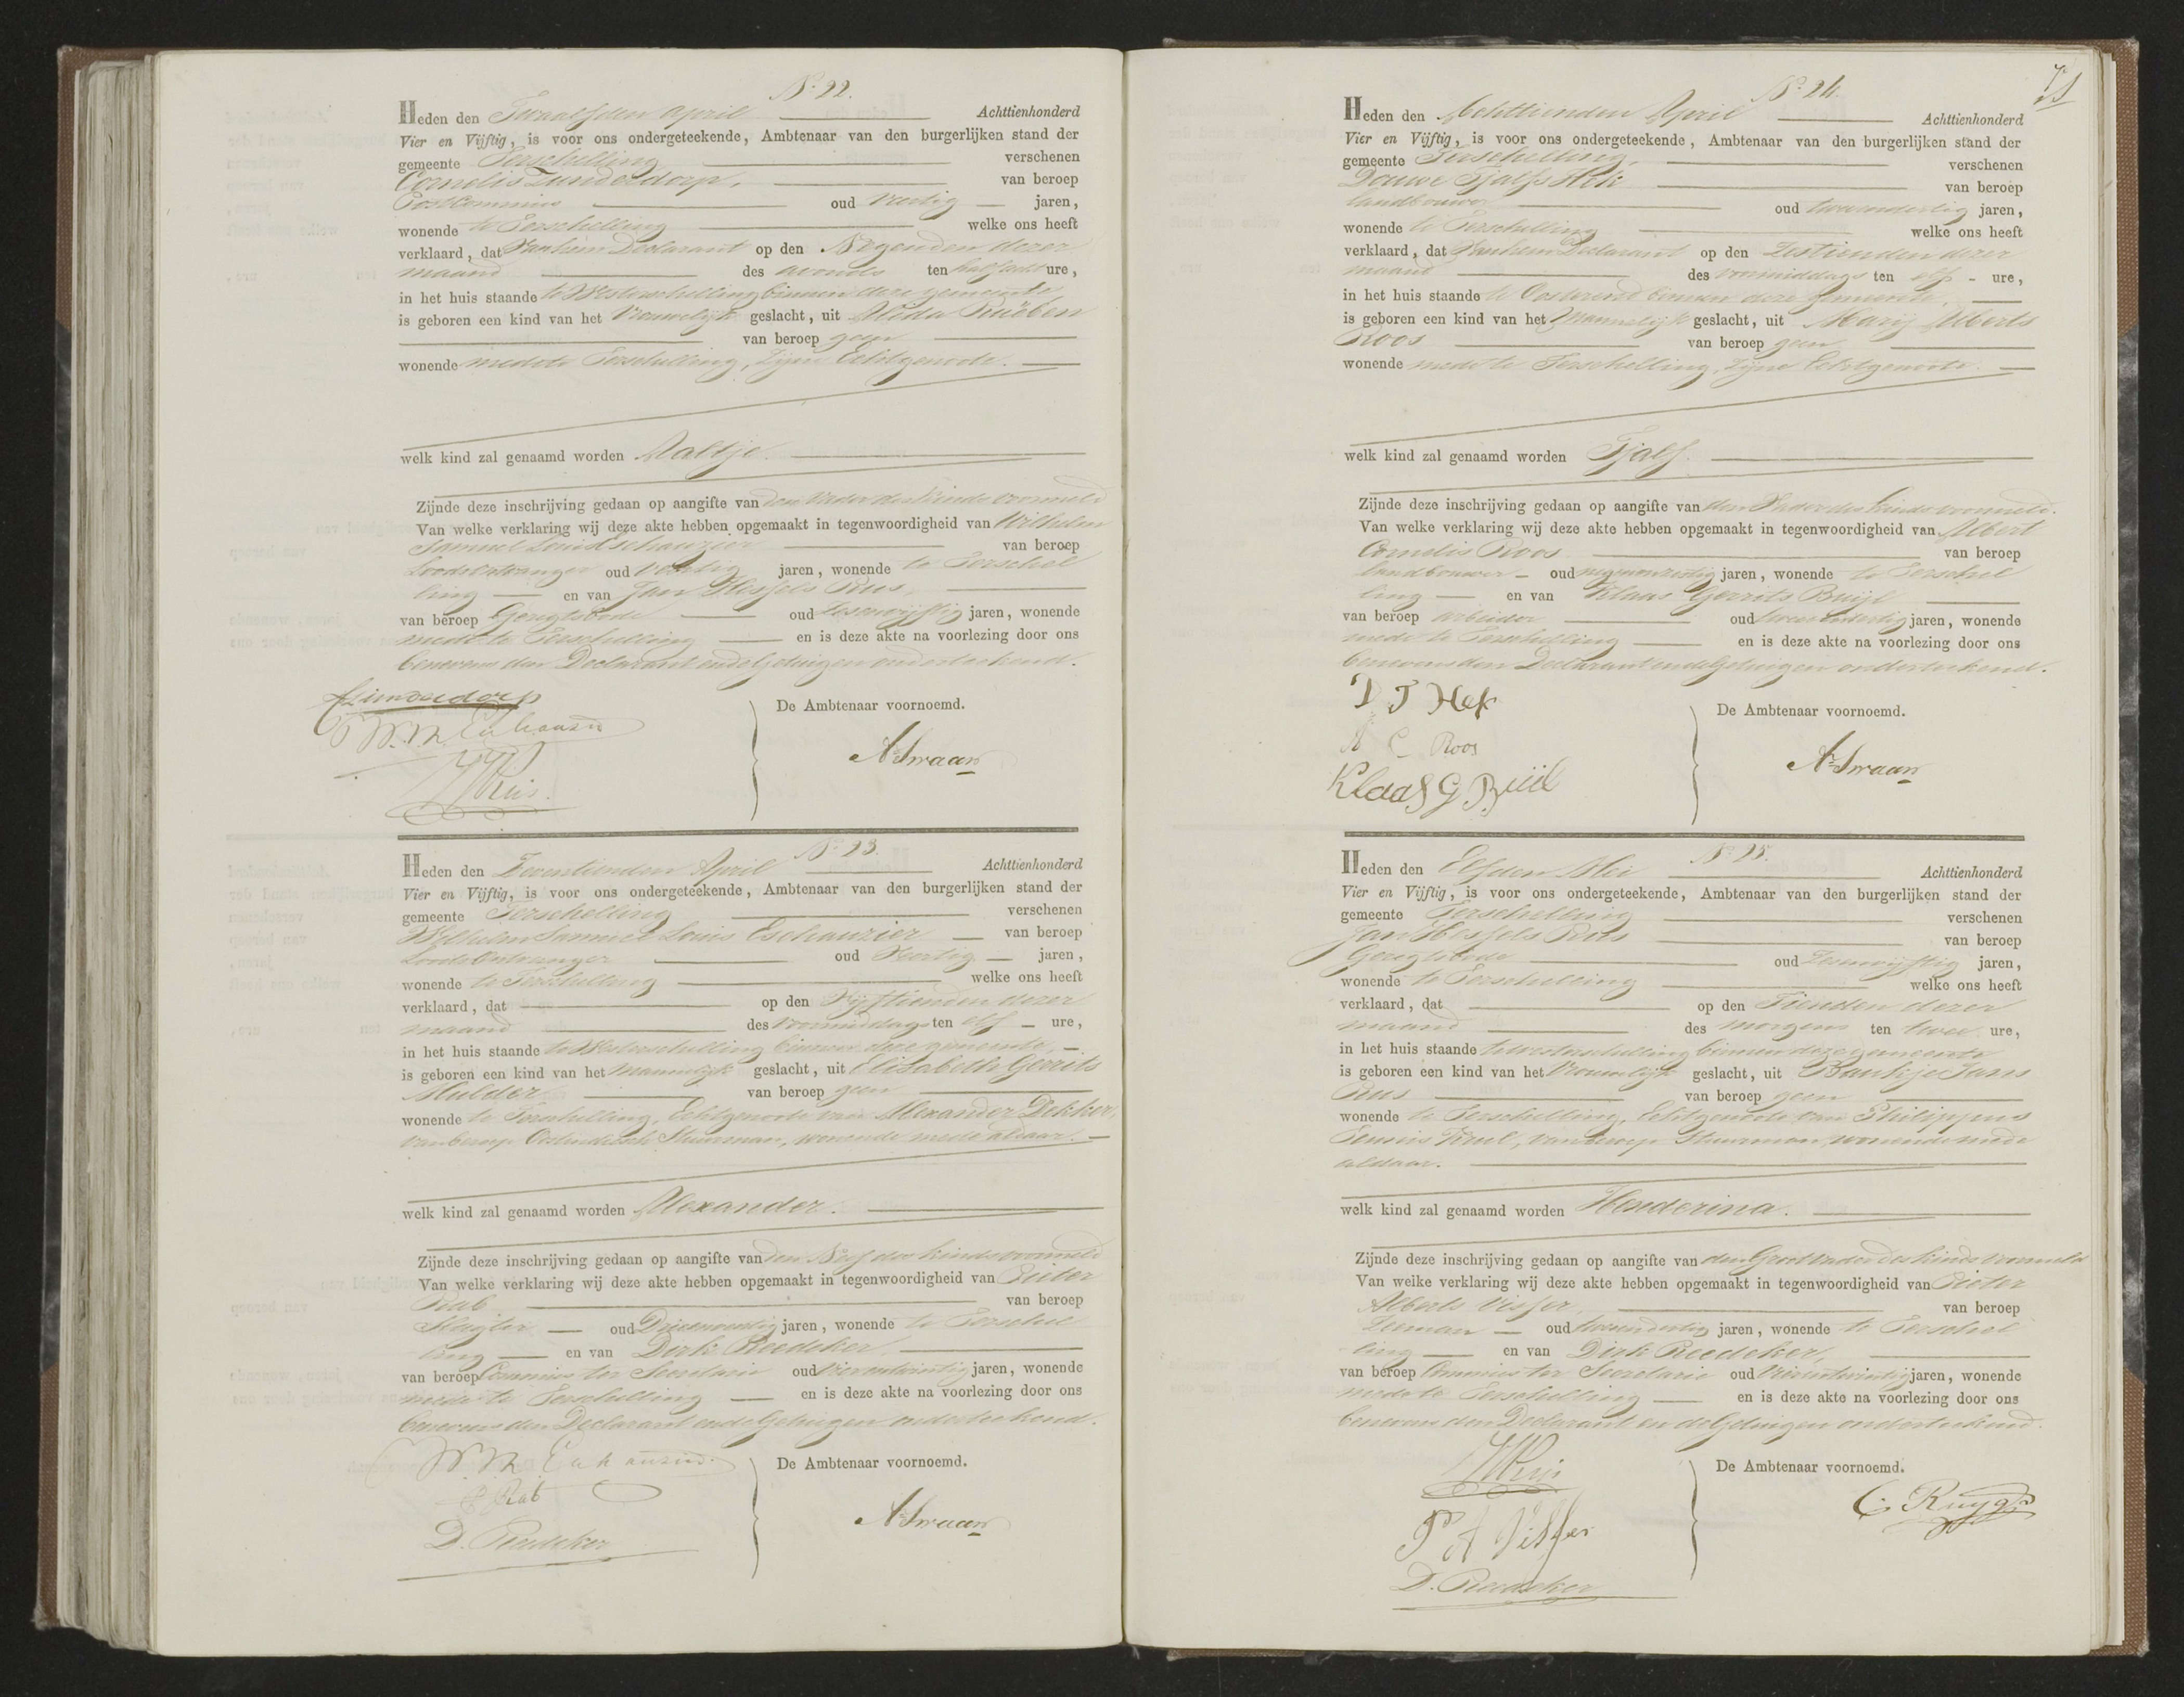 No. 22.
Heden den Twaalfden April Achttienhonderd
Vier en Vijftig, is voor ons ondergeteekende, Ambtenaar van den burgerlijken stand der
gemeente Terschelling verschenen
Cornelis Zunderdorp, van beroep
Postcommies oud Veertig jaren,
wonende te Terschelling welke ons heeft
verklaard, dat van hem Declarant op den Negenden dezer
maand des avonds ten half acht ure,
in het huis staande te Westerschelling binnen deze gemeente
is geboren een kind van het Vrouwelijk geslacht, uit Alida
van beroep geen
wonende mede te Terschelling, Zijne Echtgenoote.
welk kind zal genaamd worden Aaltje.
Zijnde deze inschrijving gedaan op aangifte van den Vader des Kinds voormeld
Van welke verklaring wij deze akte hebben opgemaakt in tegenwoordigheid van Wilhelm
Samuel Louis Eschauzier van beroep
Loods Ontvanger oud Veertig jaren, wonende te Terschel
ling en van Jan Hessels Rus,
van beroep Geregtsbode oud Zesenvijftig jaren, wonende
mede te Terschelling en is deze akte na voorlezing door ons
benevens den Declarant en de Getuigen onderteekend.
CZunderdorp
De Ambtenaar voornoemd.
Eschauzier
A Swaan
JHRus.
No. 23.
Heden den Zeventienden April Achttienhonderd
Vier en Vijftig, is voor ons ondergeteekende, Ambtenaar van den burgerlijken stand der
gemeente Terschelling verschenen
Wilhelm Samuel Louis Eschauzier van beroep
Loods Ontvanger oud Veertig jaren,
wonende te Terschelling welke ons heeft
verklaard, dat op den Vijftienden dezer
maand des voormiddags ten elf ure,
in het huis staande te Westerschelling binnen deze gemeente,
is geboren een kind van het Mannelijk geslacht, uit Elisabeth Gerrits
Mulder van beroep geen
wonende te Terschelling, Echtgenoote van Alexander Dekker,
van beroep Oostindisch Stuurman, wonende mede aldaar.
welk kind zal genaamd worden Alexander.
Zijnde deze inschrijving gedaan op aangifte van den Neef des kinds voormeld
Van welke verklaring wij deze akte hebben opgemaakt in tegenwoordigheid van Pieter
Rab van beroep
Slagter oud jaren, wonende te Terschel
ling en van Dirk Reedeker
van beroep Commies ter Secretarie oud Vierentwintig jaren, wonende
mede te Terschelling en is deze akte na voorlezing door ons
benevens den Declarant en de Getuigen onderteekend.
Eschauzier
De Ambtenaar voornoemd.
P Rab
A Swaan
D. Reedeker
71
No. 24.
Heden den Achttienden April Achttienhonderd
Vier en Vijftig, is voor ons ondergeteekende, Ambtenaar van den burgerlijken stand der
gemeente Terschelling, verschenen
Douwe Tjalfs Hek van beroep
landbouwer oud tweeendertig jaren,
wonende te Terschelling welke ons heeft
verklaard, dat van hem Declarant op den Zestienden dezer
maand des voormiddags ten elf ure,
in het huis staande te Oosterend binnen deze gemeente,
is geboren een kind van het Mannelijk geslacht, uit Marij Alberts
Roos van beroep geen
wonende mede te Terschelling, Zijne Echtgenoote.
welk kind zal genaamd worden Tjalf.
Zijnde deze inschrijving gedaan op aangifte van den Vader des kinds voormeld.
Van welke verklaring wij deze akte hebben opgemaakt in tegenwoordigheid van Albert
Cornelis Roos van beroep
landbouwer oud jaren, wonende te Terschel
ling en van Klaas Gerrits Buijl
van beroep arbeider oud jaren, wonende
mede te Terschelling en is deze akte na voorlezing door ons
benevens den Declarant en de Getuigen onderteekend.
D T Hek
De Ambtenaar voornoemd.
A C Roos
A Swaan
Klaas G Buijl
No. 25.
Heden den Elfden Mei Achttienhonderd
Vier en Vijftig, is voor ons ondergeteekende, Ambtenaar van den burgerlijken stand der
gemeente Terschelling verschenen
Jan Hessels Rus van beroep
Geregtsbode oud Zesenvijftig jaren,
wonende te Terschelling welke ons heeft
verklaard, dat op den Tienden dezer
maand des morgens ten twee ure,
in het huis staande te Westerschelling binnen deze gemeente
is geboren een kind van het Vrouwelijk geslacht, uit Baukje Jans
Rus van beroep geen
wonende te Terschelling, Echtgenoote van Philippus
Teunis Krul, van beroep Stuurman, wonende mede
aldaar.
welk kind zal genaamd worden Henderina.
Zijnde deze inschrijving gedaan op aangifte van den Grootvader des Kinds voormeld
Van welke verklaring wij deze akte hebben opgemaakt in tegenwoordigheid van Pieter
Alberts Visser, van beroep
Zeeman oud tweeendertig jaren, wonende te Terschel
ling en van Dirk Reedeker,
van beroep Commies ter Secretarie oud Vierentwintig jaren, wonende
mede te Terschelling en is deze akte na voorlezing door ons
benevens den Declarant en de Getuigen onderteekend.
JHRus
De Ambtenaar voornoemd.
P A Visser
C. Ruyg
D. Reedeker